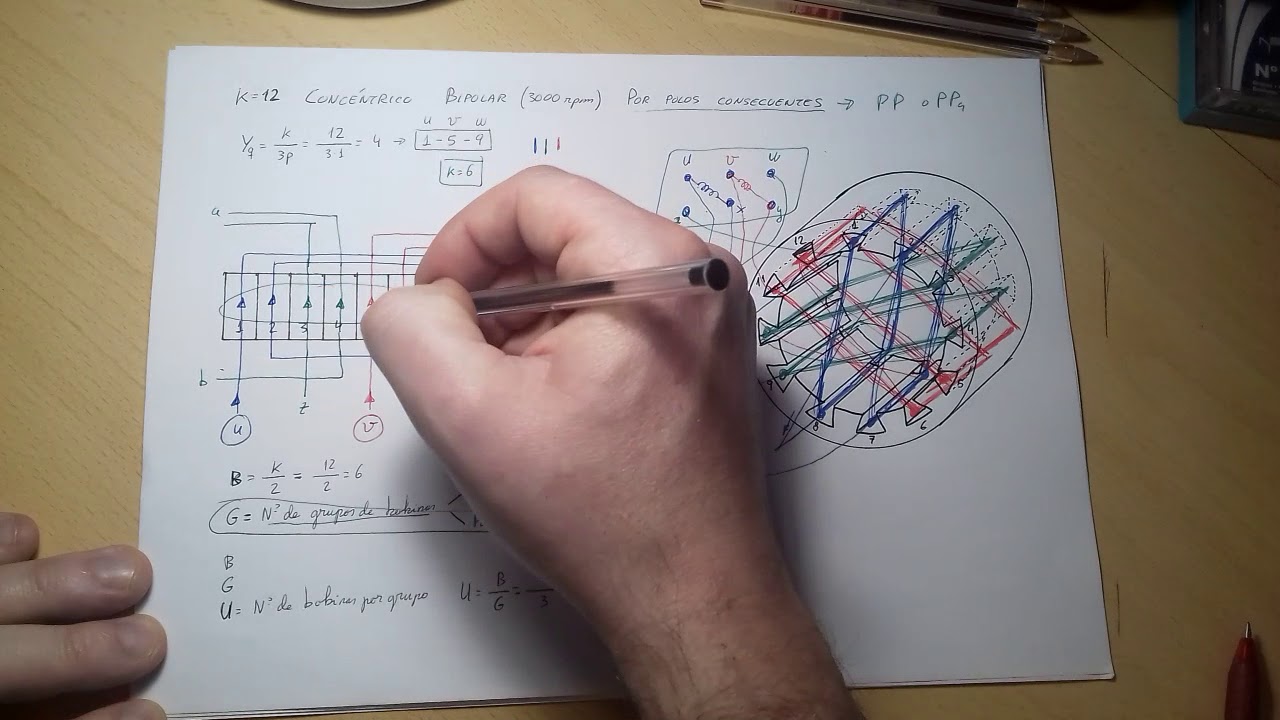 K=12 CONCÉNTRICO BIPOLAR (3000 rpm) POR POLOS CONSECUENTES → PP o PPa
U V W
Yq = K/3p = 12/3·1 = 4 → 1-5-9
K=6
U V W
x y
a
1 2 3 4
b
z
U V
12 1
11
9 8 7 6 5 4
B = K/2 = 12/2 = 6
G = Nº de grupos de bobinas
B
G
U = Nº de bobinas por grupo U = B/G = /3
Nº